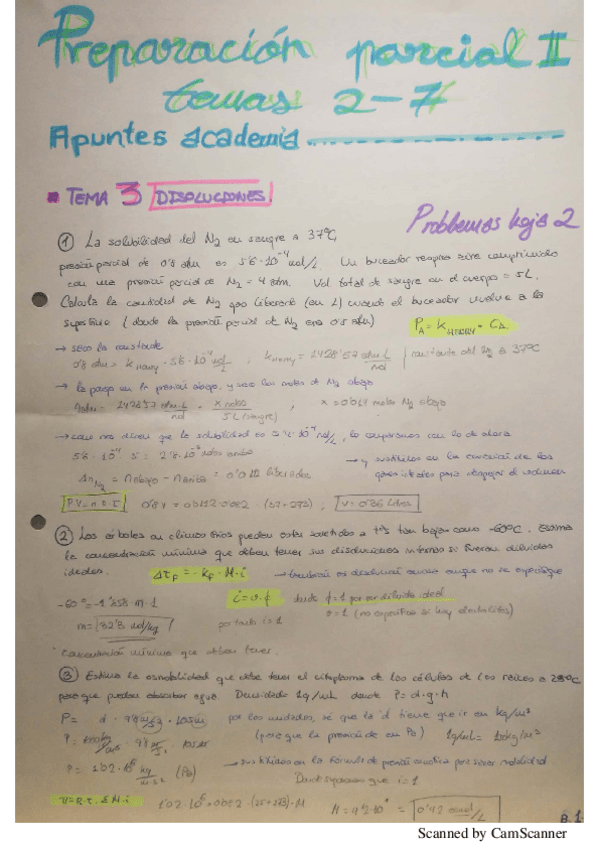 Preparación parcial II
temas 2-7
Apuntes academia
TEMA 3 DISOLUCIONES!
Problemas hoja 2
① La solubilidad del N2 en sangre a 37ºC,
presión parcial de 0'8 atm es 5'6·10⁻⁴ mol/L. Un buceador respira aire comprimido
con una presión parcial de N2 = 4 atm. Vol total de sangre en el cuerpo = 5L.
Calcula la cantidad de N2 gas liberado (en L) cuando el buceador vuelve a la
superficie (donde la presión parcial de N2 era 0'8 atm)
P_A = K_HENRY · C_A
→ saco la constante
0'8 atm = K_HENRY · 5'6·10⁻⁴ mol/L ; K_HENRY = 1428'57 atm·L/mol | constante del N2 a 37ºC
→ lo paso en la presión abajo, y saco los moles de N2 abajo
1428'57 atm·L/mol · x moles/5L (sangre) , x = 0'014 moles N2 abajo
→ como nos dicen que la solubilidad es 5'6·10⁻⁴ mol/L, lo
5'6·10⁻⁴ · 5 = 2'8·10⁻³ moles
→ y sustituyo en la ecuación de los
gases ideales para despejar el volumen
Δn_N2 = n abajo - n arriba = 0'0112 liberados
P·V = n·R·T 0'8·V = 0'0112·0'082 · (37+273) ; V = 0'36 litros
② Los árboles en climas fríos pueden estar sometidos a tªs tan bajas como -60ºC. Estima
la concentración mínima que deben tener sus disoluciones internas si fueran diluidas
ideales.
ΔT_f = -K_f · M · i
→ tendrán
-60º = -1'858 m·1
m = 32'3 mol/kg
i = ν·φ donde φ=1 por ser diluida ideal
por tanto i=1
ν=1 (no especifica si hay electrolitos)
Concentración mínima que deben tener.
③ Estima la osmolalidad que debe tener el citoplasma de las células de las raíces a 25ºC
para que puedan absorber agua. Densidad 1g/mL donde P=d·g·h
P= d · 9'8 m/s² · 105m
por las unidades, sé que la d tiene que ir en kg/m³
(para que la presión dé en Pa) 1g/mL = 1000kg/m³
P = 1000 kg/m³ · 9'8 m/s² · 105m
P = 1'02·10⁶ kg/m·s² (Pa)
→ sustituimos en la fórmula de presión osmótica para sacar molalidad
que i=1
π = R·T·ΣM·i
(25+273)·M
0'42 osmol/L
B.1
Scanned by CamScanner